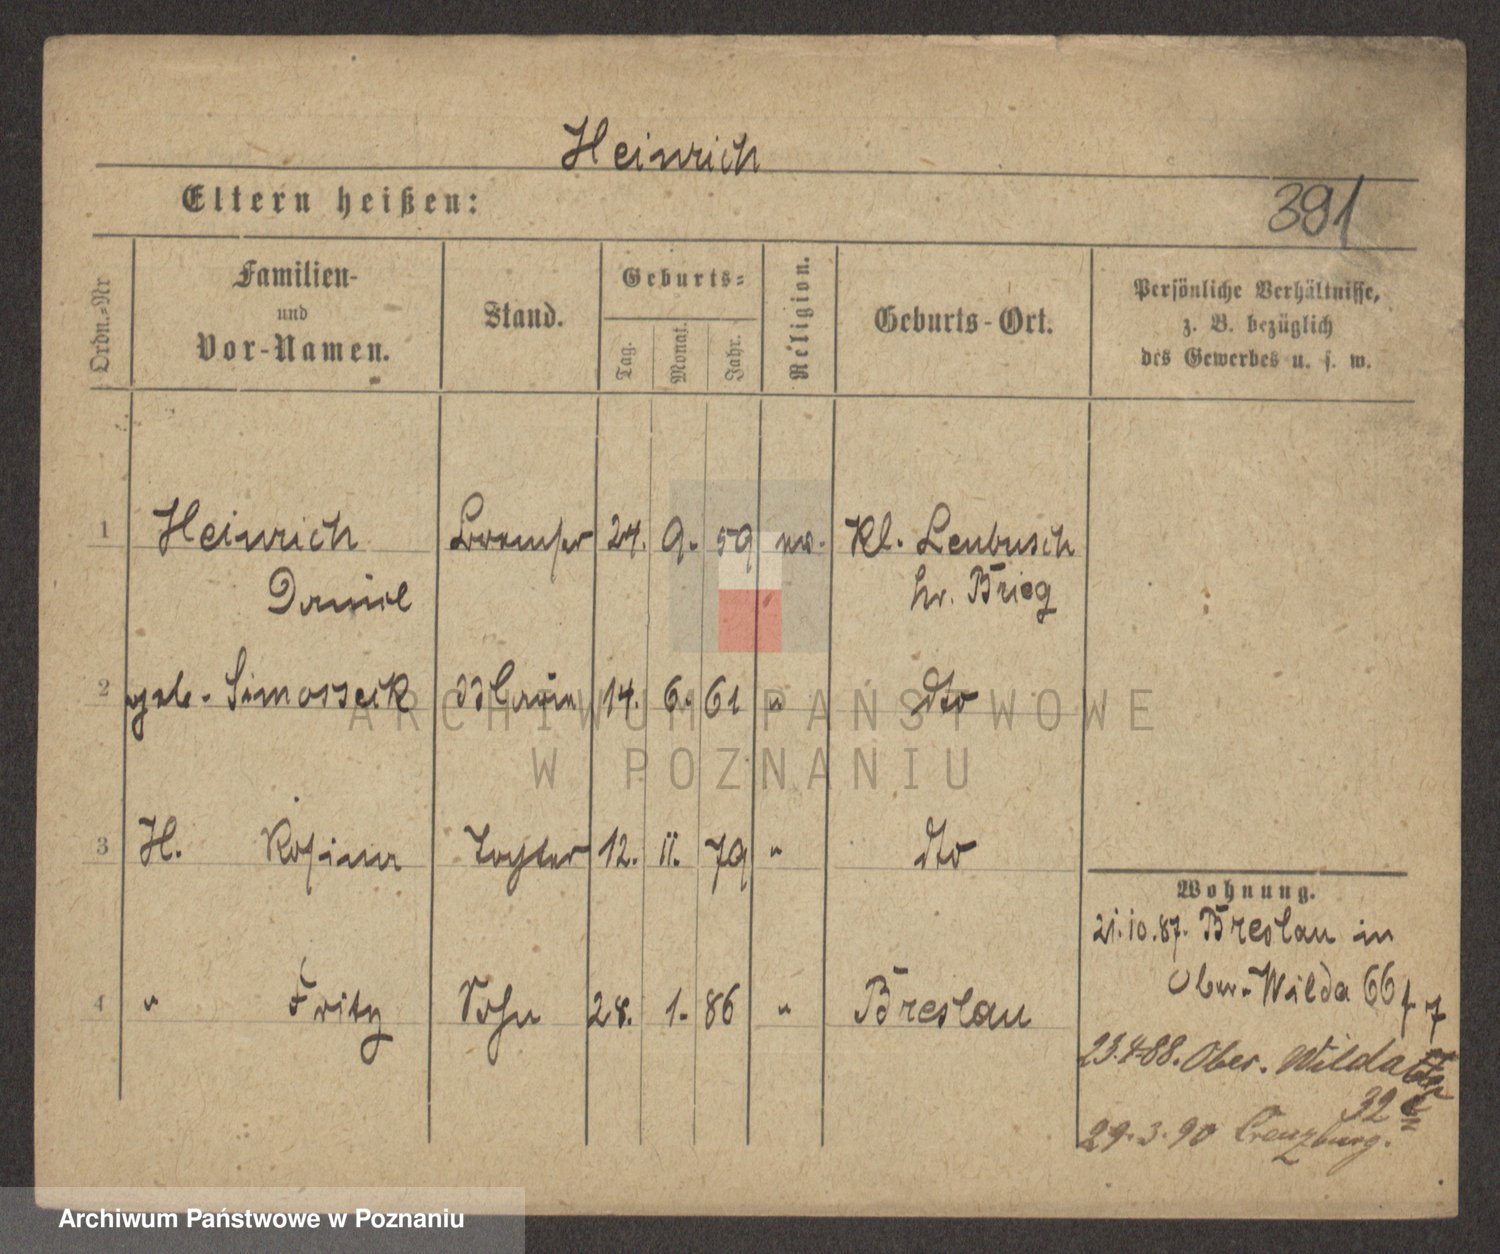 Heinrich
Eltern heißen:
391
Ordn.-Nr
Familien-
und
Vor-Namen.
Stand.
Geburts-
Tag.
Monat.
Jahr.
Religion.
Geburts-Ort.
Persönliche Verhältnisse,
z. B. bezüglich
des Gewerbes u. s. w.
1 Heinrich Bremser 24. 9. 59 ev. Kl. Leubusch
Daniel Kr. Brieg
2 geb. Simosseck 14. 6. 61 " dto
3 H. Rosina Tochter 12. 11. 79 " dto
4 " Fritz Sohn 28. 1. 86 " Breslau
Wohnung.
21.10.87. Breslau in
Ober-Wilda 66
23.4.88. Ober. Wilda
32
29.3.90 Creuzburg.
ARCHIWUM PAŃSTWOWE
W POZNANIU
Archiwum Państwowe w Poznaniu